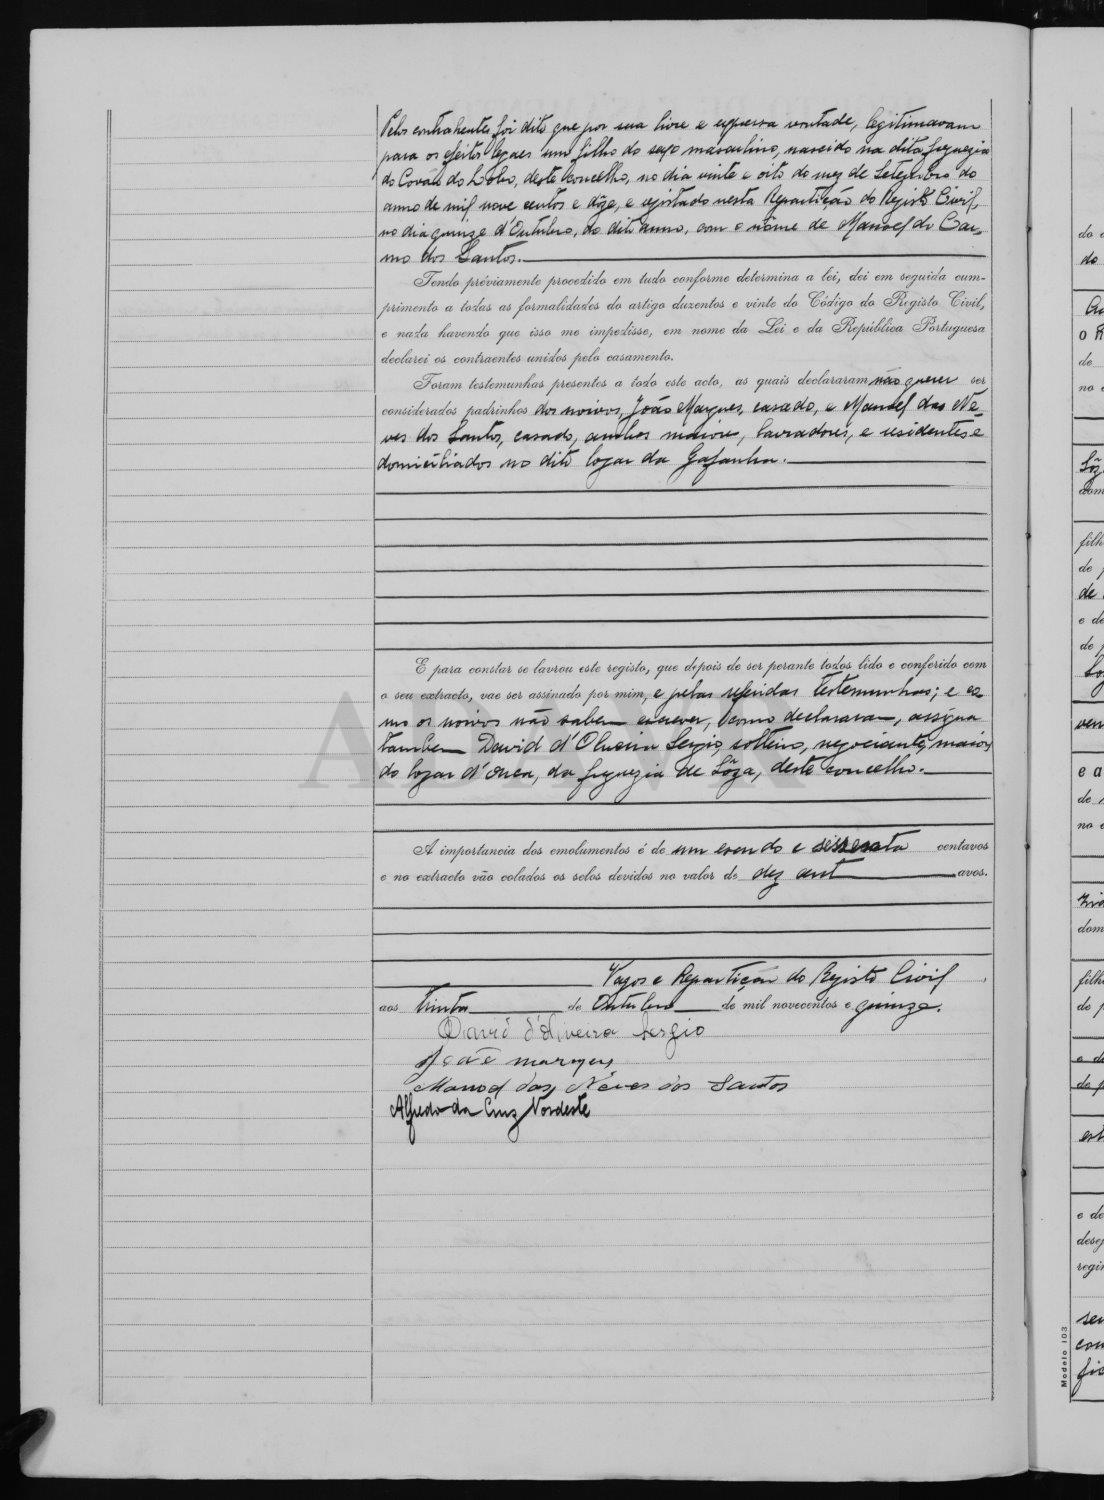 Pelos contrahentes foi dito que por sua livre e expressa vontade, legitimavam
para os efeitos legaes um filho do sexo masculino, nascido na dita freguezia
do Covão do Lobo, deste concelho, no dia vinte e oito do mez de Setembro do
anno de mil nove centos e dôze, e registado nesta Repartição do Registo Civil,
no dia quinze d'Outubro, do dito anno, com o nôme de Manoel do Car-
mo dos Santos.
Tendo préviamente procedido em tudo conforme determina a lei, dei em seguida cum-
primento a todas as formalidades do artigo duzentos e vinte do Código do Registo Civil,
e nada havendo que isso me impedisse, em nome da Lei e da República Portuguesa
declarei os contraentes unidos pelo casamento.
Foram testemunhas presentes a todo este acto, as quais declararam não querer ser
considerados padrinhos dos noivos, João Marques, casado, e Manoel das Ne-
ves dos Santos, casado, ambos maiores, lavradores, e residentes e
domiciliados no dito logar da Gafanha.
E para constar se lavrou este registo, que depois de ser perante todos lido e conferido com
o seu extracto, vae ser assinado por mim, e pelas referidas testemunhas; e co
mo os noivos não sabem escrever, como declararam, assigna
tambem David d'Oliveira Sergio, solteiro, negociante, maior,
do logar d'Ouca, da freguezia de Sôza, deste concelho.
ADAVR
A importancia dos emolumentos é de um escudo e sessenta centavos
e no extracto vão colados os selos devidos no valor de dez cent avos.
Vagos e Repartição do Registo Civil,
aos trinta de Outubro de mil novecentos e quinze.
David d'Oliveira Sergio
João marques
Manoel das Neves dos Santos
Alfredo da Cruz Nordeste
do
de
no
filh
de
de
e de
de p
ven
e a
de
no
dom
filh
de p
e de
de p
e de
desej
regi
Modelo 103